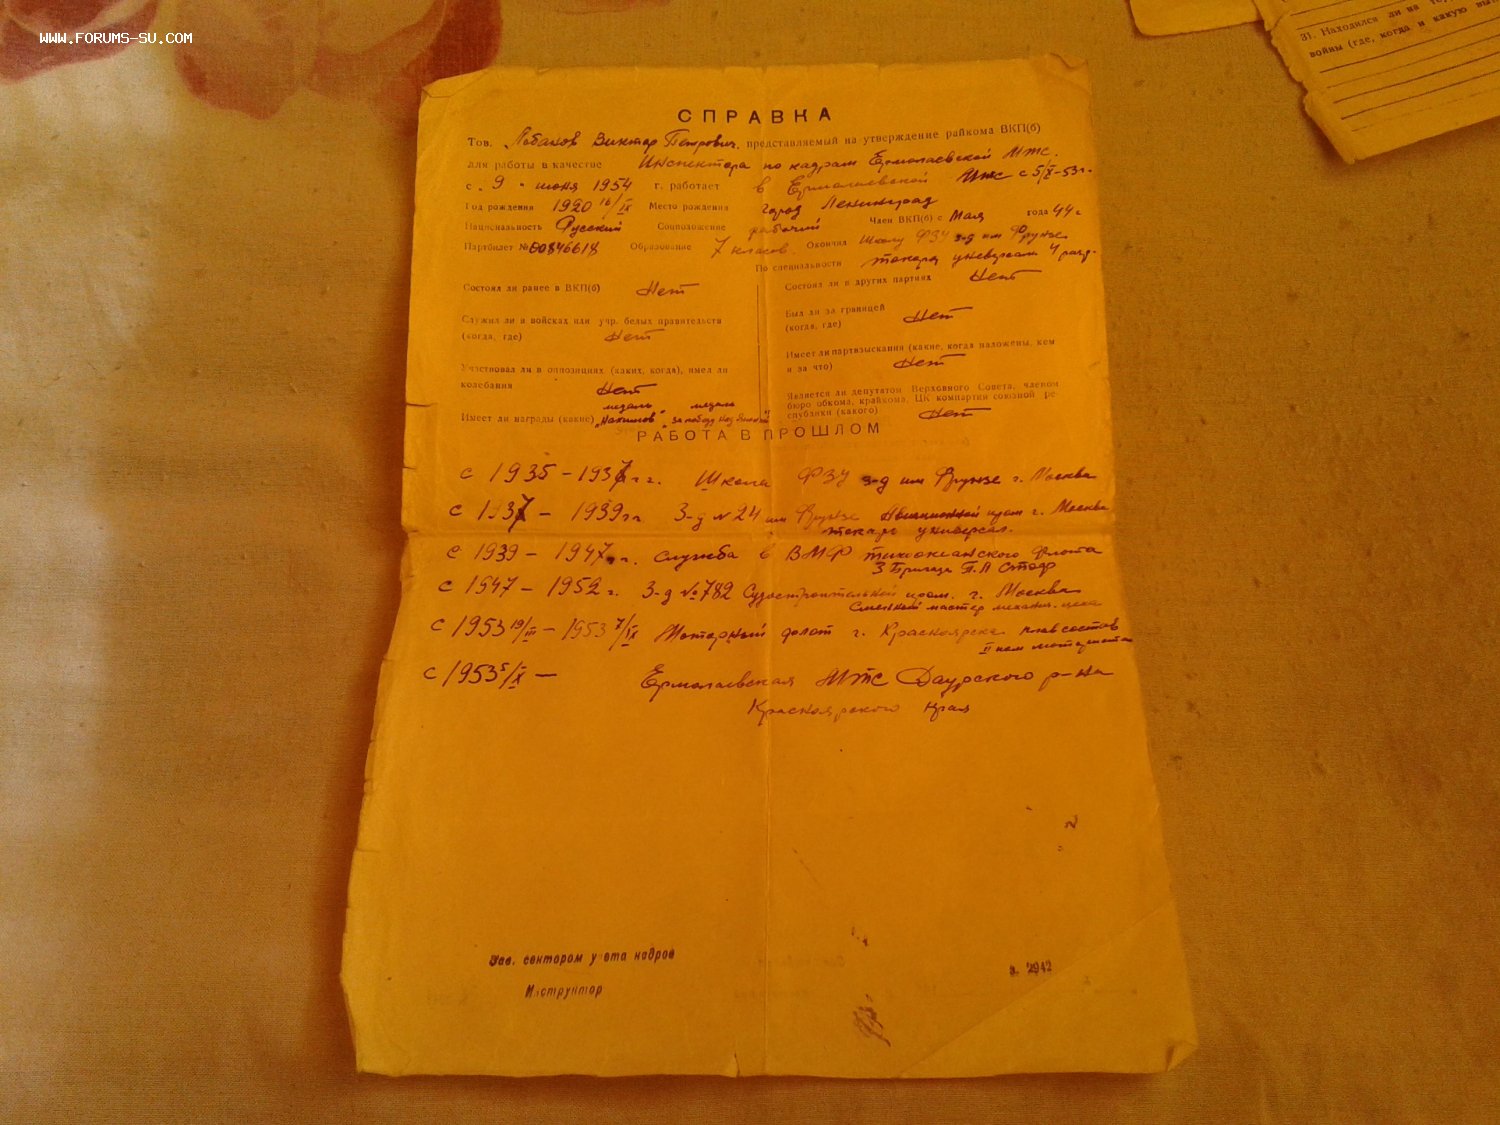 WWW.FORUMS-SU.COM
31. Находился ли на
войны (где, когда и какую
СПРАВКА
Тов. Лобанов Виктор Петрович, представляемый на утверждение райкома ВКП(б)
для работы в качестве Инспектора по кадрам Ермолаевской МТС.
с „ 9 " июня 1954 г. работает в Ермолаевской МТС с 5/X-53г.
Год рождения 1920 16/IX Место рождения город Ленинград
Национальность Русский Соцположение рабочий Член ВКП(б) с Мая года 44 г
Партбилет № 00846618 Образование 7 класов. Окончил Школу ФЗУ з-д им Фрунзе
По специальности токарь 4 разр.
Состоял ли ранее в ВКП(б) Нет
Состоял ли в других партиях Нет
Служил ли в войсках или учр. белых правительств
(когда, где) Нет
Был ли за границей
(когда, где) Нет
Имеет ли партвзыскания (какие, когда наложены, кем
и за что) Нет
Участвовал ли в оппозициях (каких, когда), имел ли
колебания Нет
Является ли депутатом Верховного Совета, членом
бюро обкома, крайкома, ЦК компартии союзной ре-
спублики (какого) Нет
медаль медаль
Имеет ли награды (какие) „Нахимов" „за победу над Японией"
РАБОТА В ПРОШЛОМ
с 1935 - 1937 гг. Школа ФЗУ з-д им Фрунзе г. Москва
с 1937 - 1939 гг. З-д №24 им Фрунзе пром г. Москва
токарь универсал.
с 1939 - 1947 г. служба в ВМФ тихоокеанского флота
3 Бригада
с 1947 - 1952 г. З-д №782 Судостроительной пром. г. Москва
Сменный мастер механич. цеха
с 1953 19/III - 1953 7/IX г. Красноярска плавсостав
II пом
с 1953 5/X - Ермолаевская МТС Даурского р-на
Красноярского края
Зав. сектором учета кадров
Инструктор
з. 2942